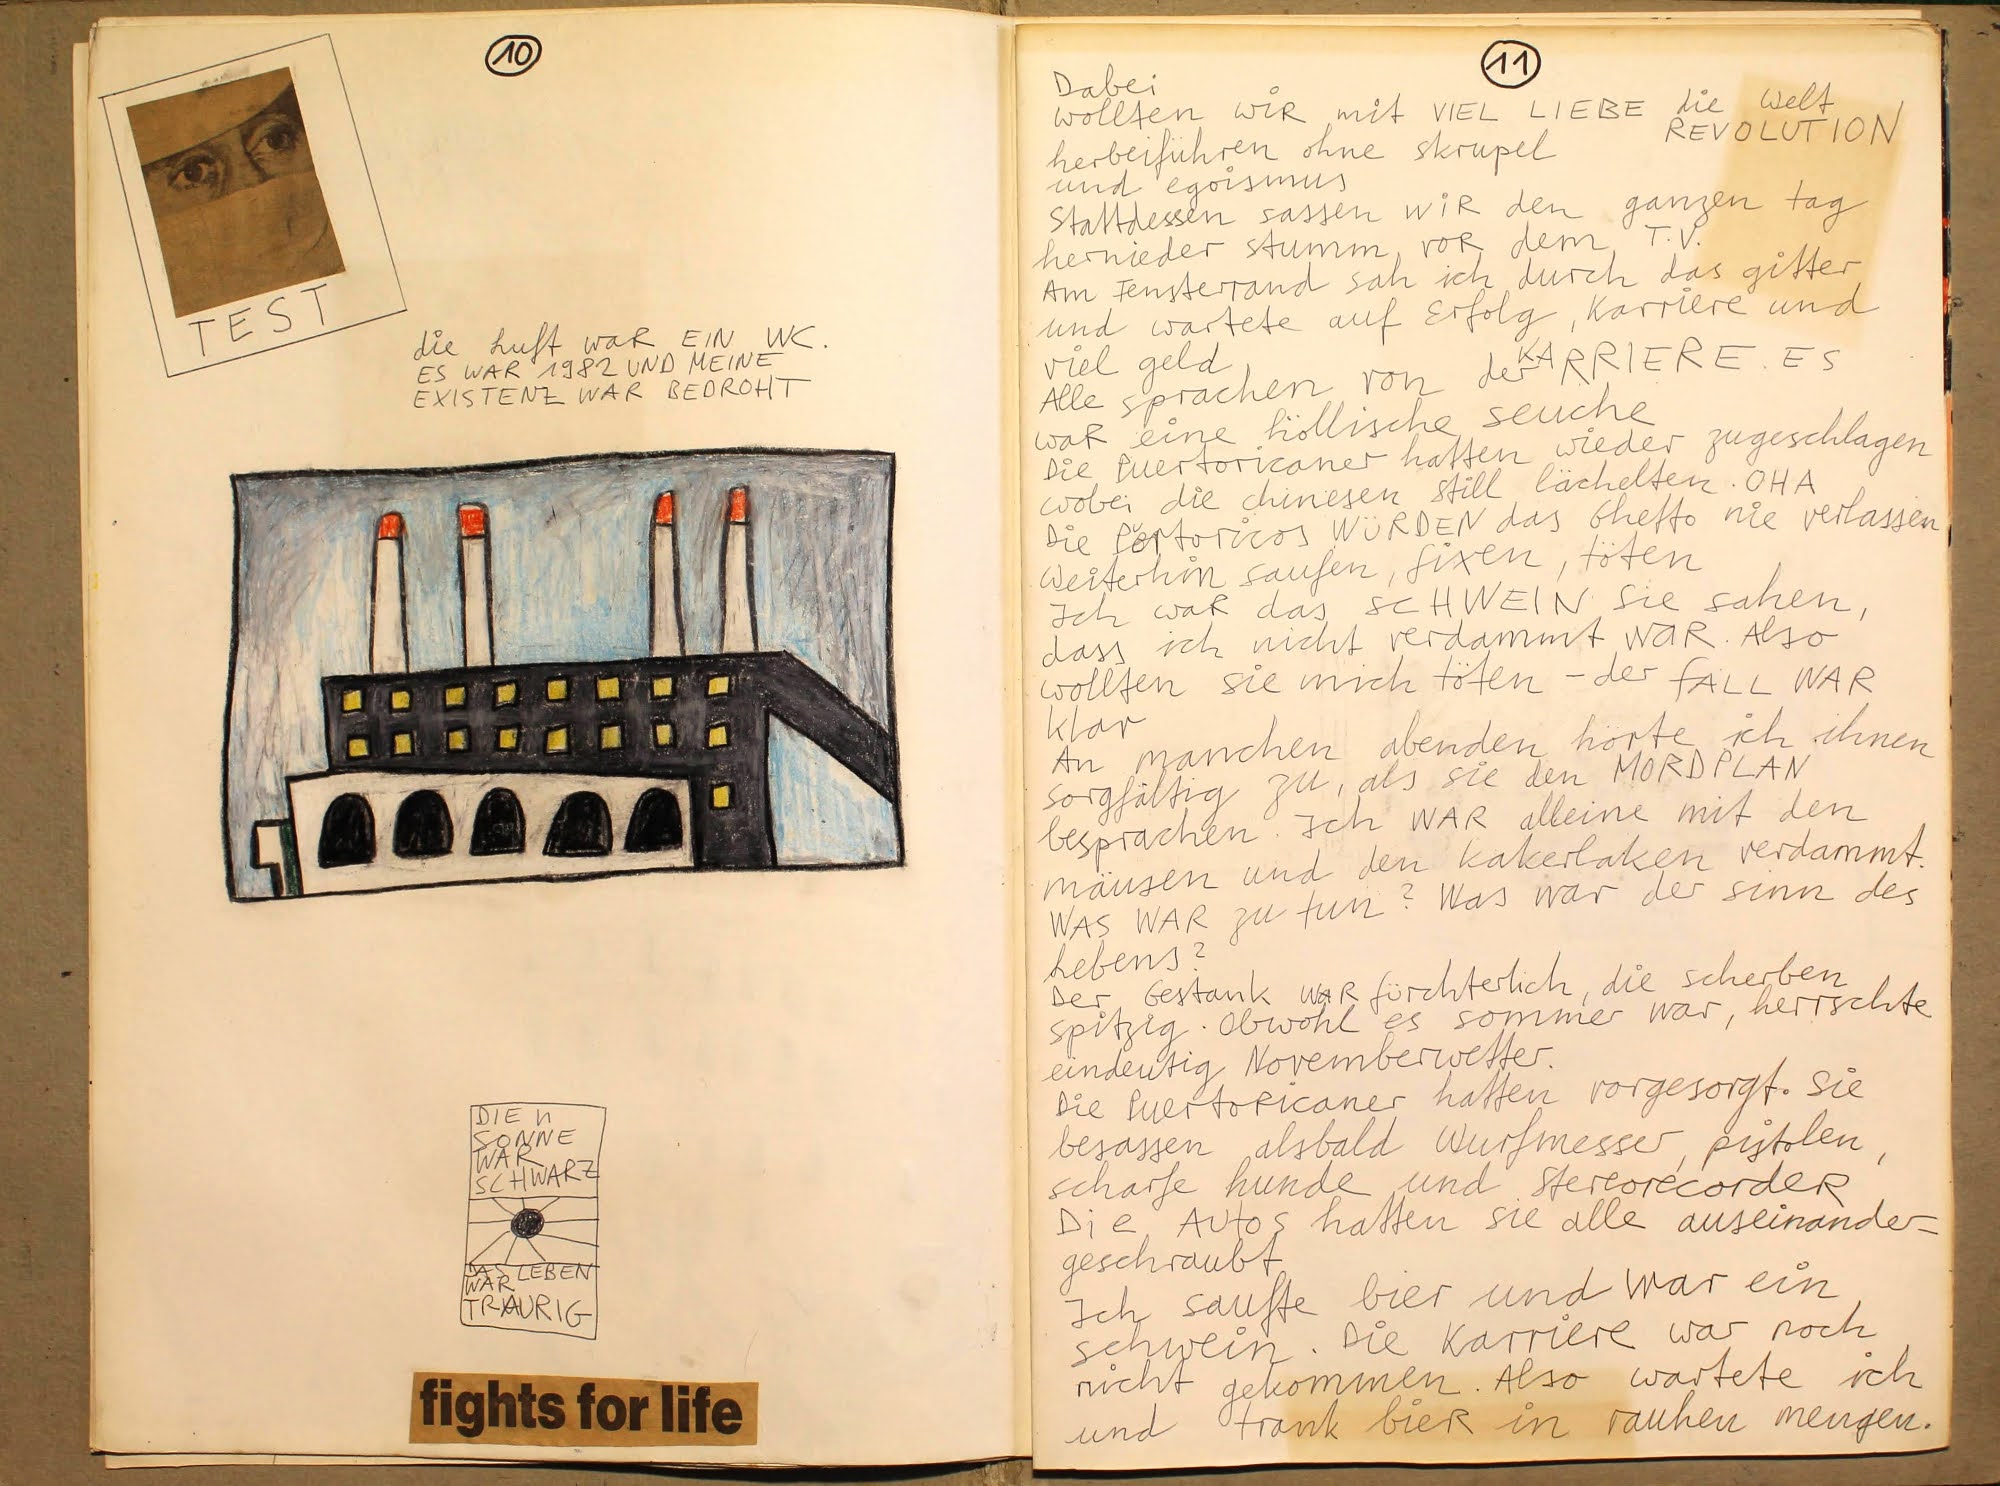 10
TEST
die Luft waR EIN WC.
ES WAR 1982 UND MEINE
EXISTENZ WAR BEDROHT
DIE
SONNE
WAR
SCHWARZ
DAS LEBEN
WAR
TRAURIG
fights for life
11
Dabei
wollten wiR mit VIEL LIEBE die Welt
REVOLUTION
herbeiführen ohne skrupel
und egoismus
Stattdessen sassen WiR den ganzen tag
hernieder stumm voR dem T.V.
Am Fensterrand sah ich durch das gitter
und wartete auf Erfolg, Karriere und
viel geld
Alle sprachen von der KARRIERE. ES
waR eine höllische seuche
Die Puertoricaner hatten wieder zugeschlagen
wobei die chinesen still lächelten. OHA
Die Pörtoricos WÜRDEN das Ghetto nie verlassen
weiterhin saufen, fixen, töten
Ich waR das SCHWEIN Sie sahen,
dass ich nicht verdammt waR. Also
wollten sie mich töten - der FALL WAR
klar
An manchen abenden hörte ich ihnen
sorgfältig zu, als sie den MORDPLAN
besprachen. Ich WAR alleine mit den
mäusen und den kakerlaken verdammt.
WAS WAR zu tun? Was war der sinn des
Lebens?
Der Gestank waR fürchterlich, die scherben
spitzig. Obwohl es sommer war, herrschte
eindeutig Novemberwetter.
Die PuertoRicaner hatten vorgesorgt. Sie
besassen alsbald Wurfmesser, pistolen,
scharfe hunde und StereorecordeR
Die Autos hatten sie alle auseinander-
geschraubt
Ich saufte bier und war ein
schwein. Die Karriere war noch
nicht gekommen. Also wartete ich
und trank bieR in rauhen mengen.